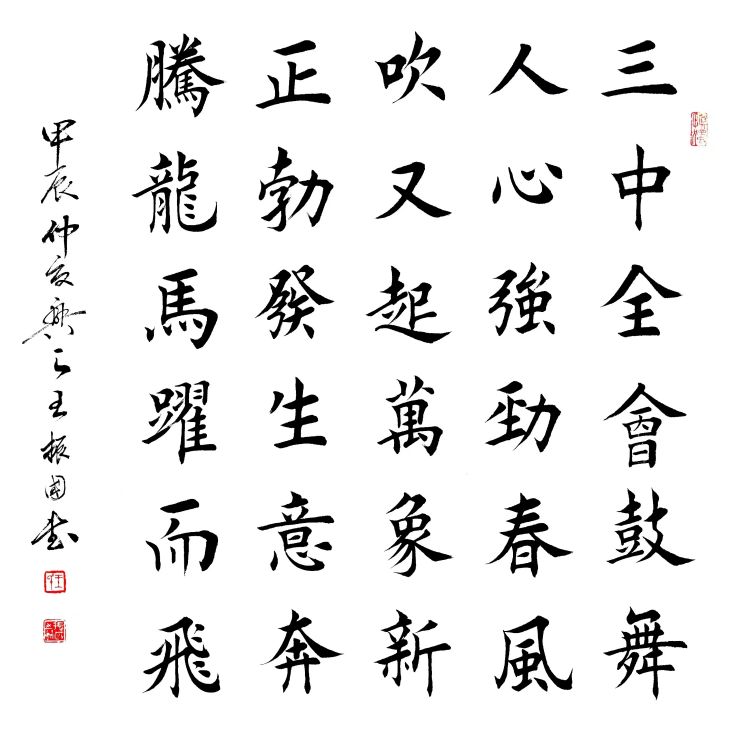 三中全會鼓舞
人心強勁春風
吹又起萬象新
正勃發生意奔
騰龍馬躍而飛
甲辰仲夏興之王振國書